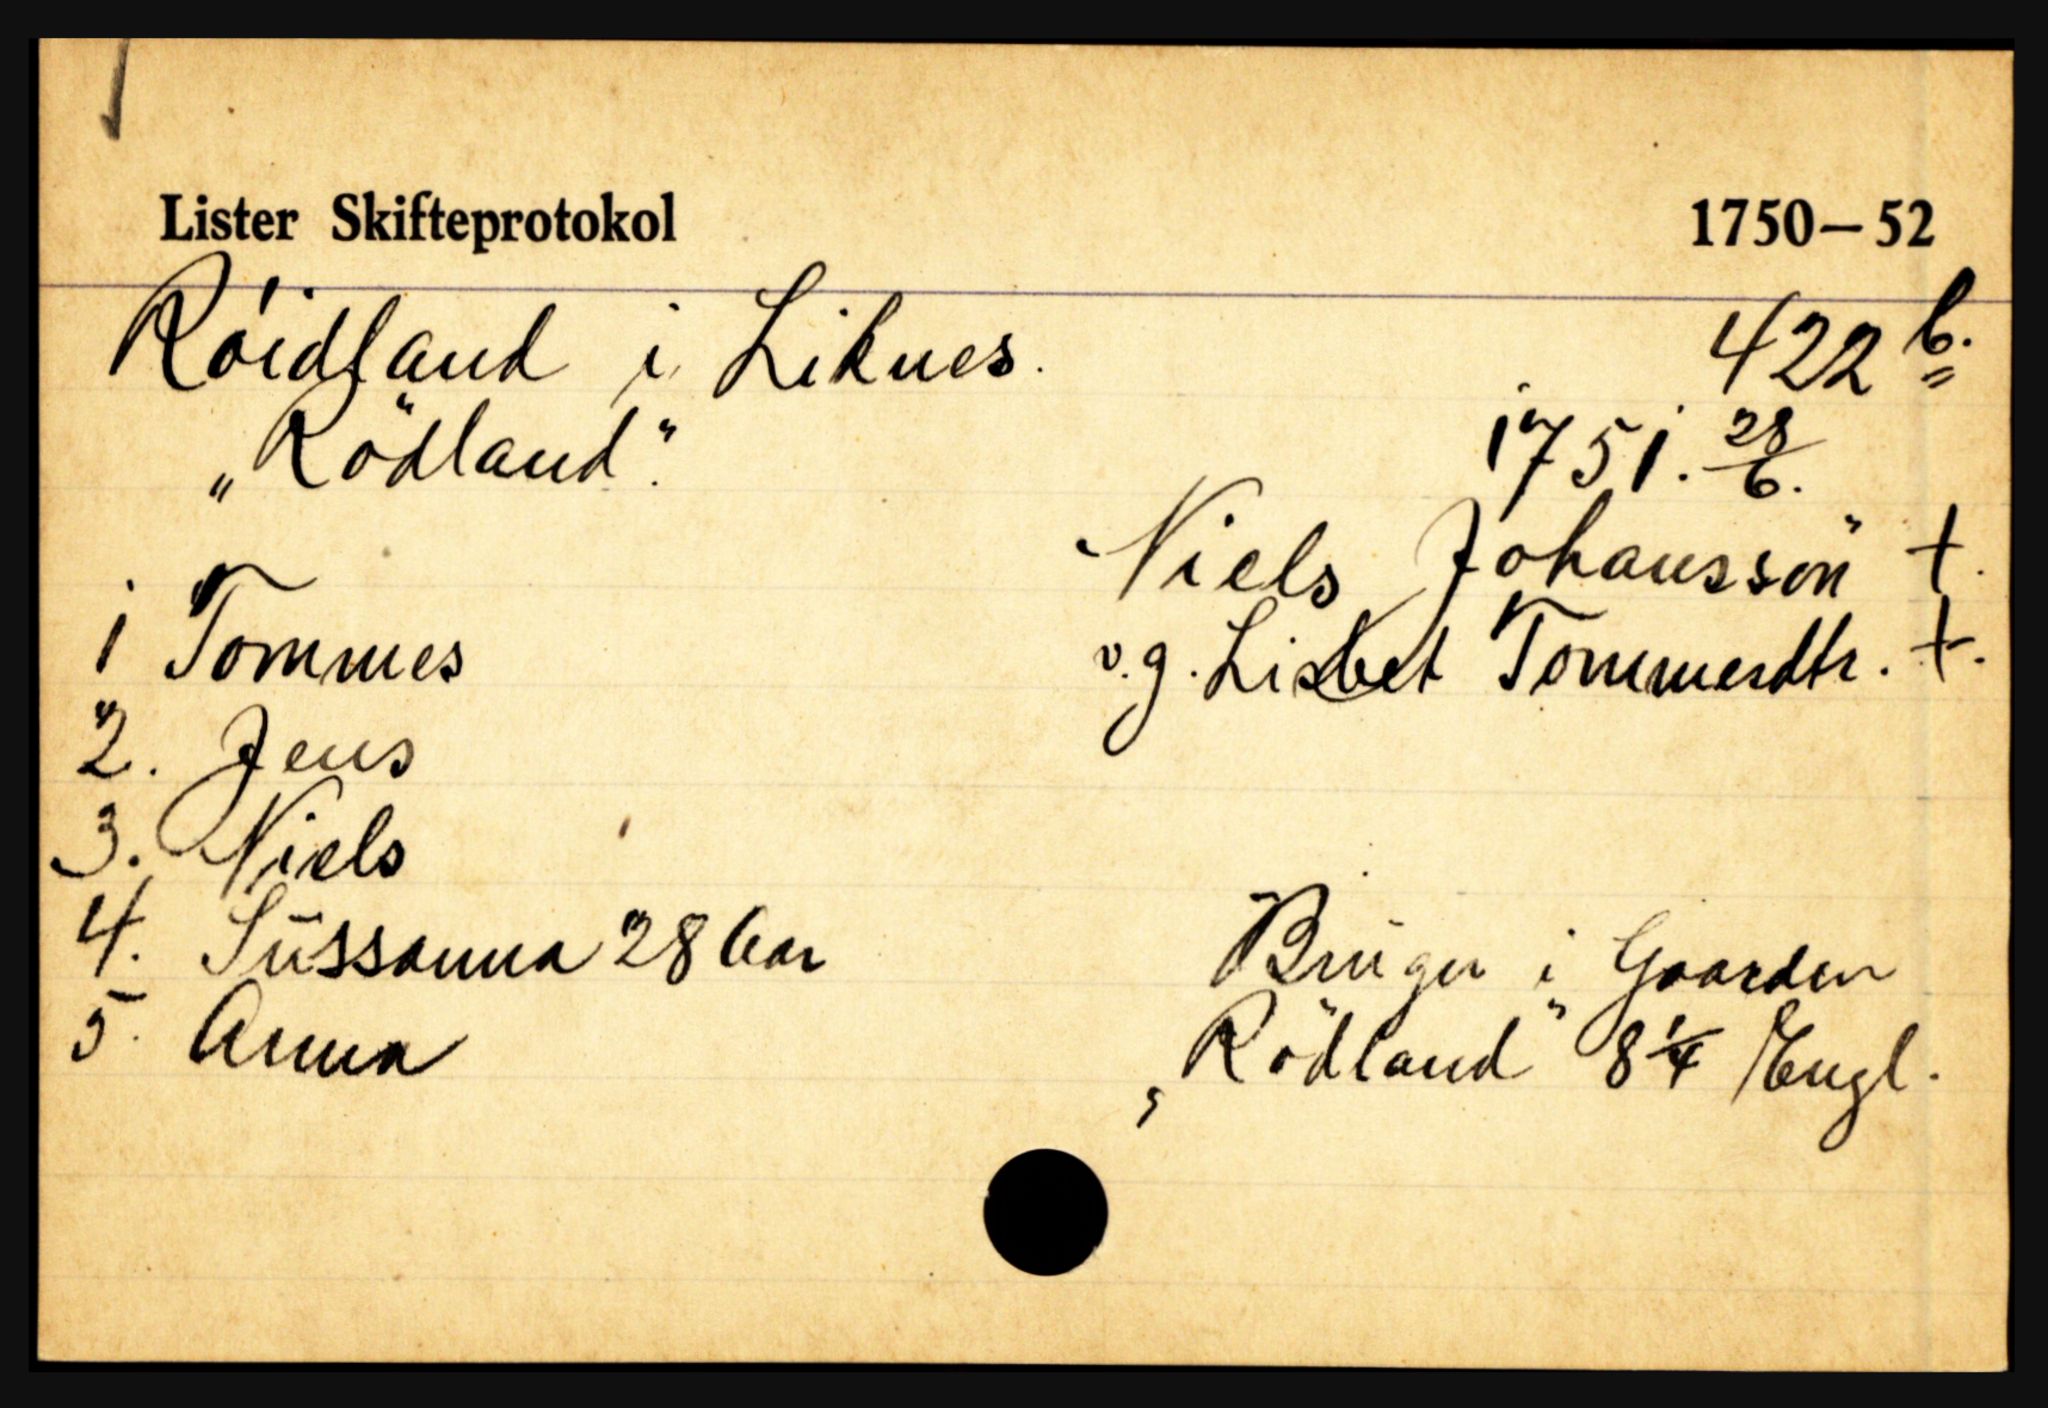 Lister Skifteprotokol 1750–52
Röidland i Liknes. 422 b.
„Rödland". 1751. 28/6.
Niels Johanssön +.
1 Tommes v.g. Lisbet Tommesdtr. +.
2. Jens
3. Niels
4. Sussanna 28 Aar Bruger i Gaarden
5. Anna „Rödland" 8 1/4 Engl.